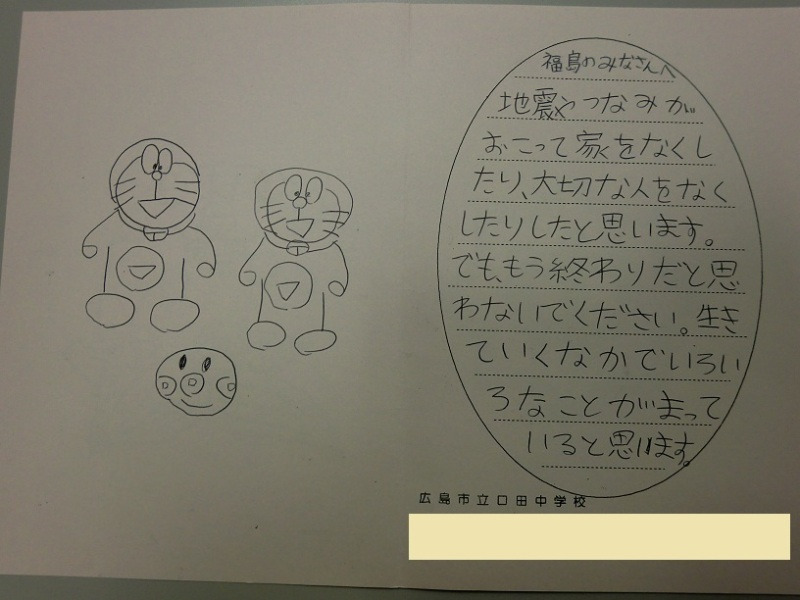 福島のみなさんへ
地震やつなみが
おこって家をなくし
たり、大切な人をなく
したりしたと思います。
でも、もう終わりだと思
わないでください。生き
ていくなかでいろい
ろなことがまって
いると思います。
広島市立口田中学校